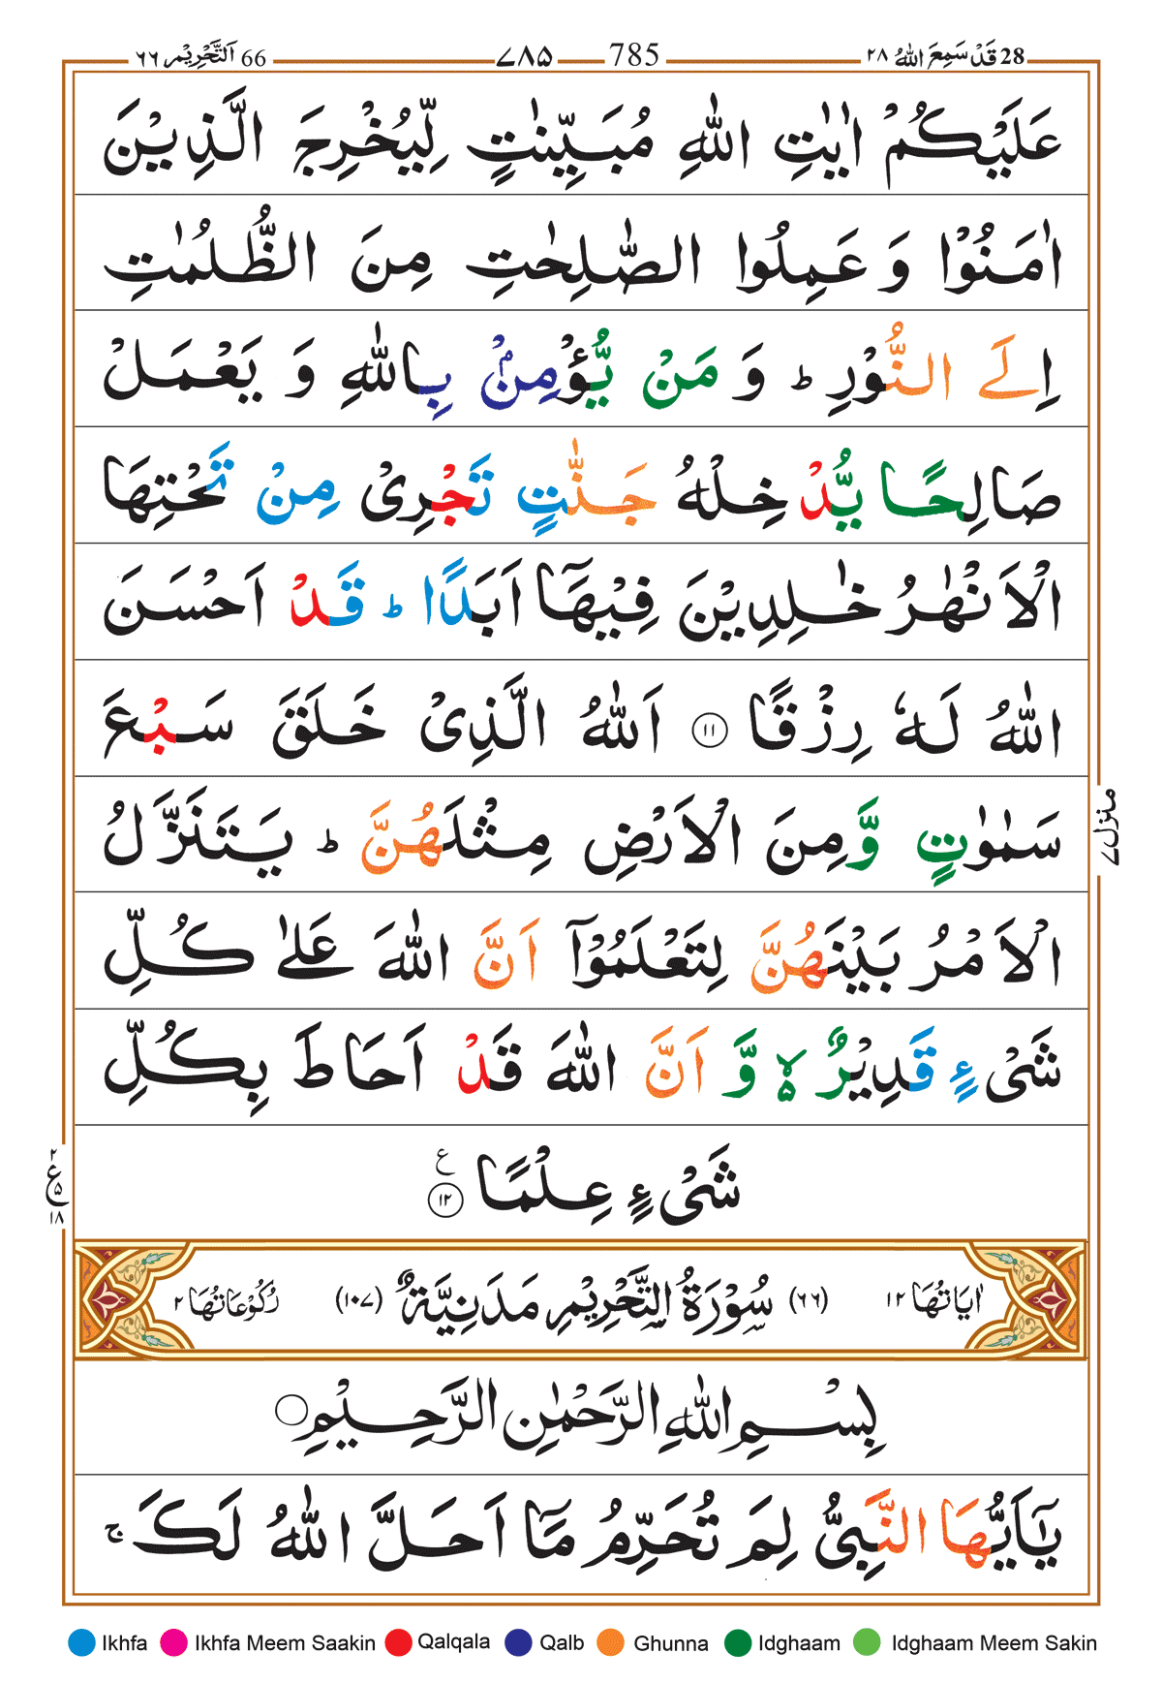 66 اَلتَّحْرِیْم ٦٦ ٧٨٥ 785 28 قَدْ سَمِعَ اللّٰهُ ٢٨
عَلَیْكُمْ اٰیٰتِ اللّٰهِ مُبَیِّنٰتٍ لِّیُخْرِجَ الَّذِیْنَ
اٰمَنُوْا وَ عَمِلُوا الصّٰلِحٰتِ مِنَ الظُّلُمٰتِ
اِلَی النُّوْرِ ؕ وَ مَنْ یُّؤْمِنْۢ بِاللّٰهِ وَ یَعْمَلْ
صَالِحًا یُّدْخِلْهُ جَنّٰتٍ تَجْرِیْ مِنْ تَحْتِهَا
الْاَنْهٰرُ خٰلِدِیْنَ فِیْهَاۤ اَبَدًا ؕ قَدْ اَحْسَنَ
اللّٰهُ لَهٗ رِزْقًا ١١ اَللّٰهُ الَّذِیْ خَلَقَ سَبْعَ
سَمٰوٰتٍ وَّمِنَ الْاَرْضِ مِثْلَهُنَّ ؕ یَتَنَزَّلُ
الْاَمْرُ بَیْنَهُنَّ لِتَعْلَمُوْۤا اَنَّ اللّٰهَ عَلٰی كُلِّ
شَیْءٍ قَدِیْرٌ ۙ٥ وَّ اَنَّ اللّٰهَ قَدْ اَحَاطَ بِكُلِّ
شَیْءٍ عِلْمًا ١٢ ع
٢
ع ٥
١٨
منزل ٧
اٰیَاتُهَا ١٢ (٦٦) سُوْرَةُ التَّحْرِیْمِ مَدَنِیَّةٌ (١٠٧) رُكُوْعَاتُهَا ٢
بِسْمِ اللّٰهِ الرَّحْمٰنِ الرَّحِیْمِ
یٰۤاَیُّهَا النَّبِیُّ لِمَ تُحَرِّمُ مَاۤ اَحَلَّ اللّٰهُ لَكَ ۚ
Ikhfa Ikhfa Meem Saakin Qalqala Qalb Ghunna Idghaam Idghaam Meem Sakin